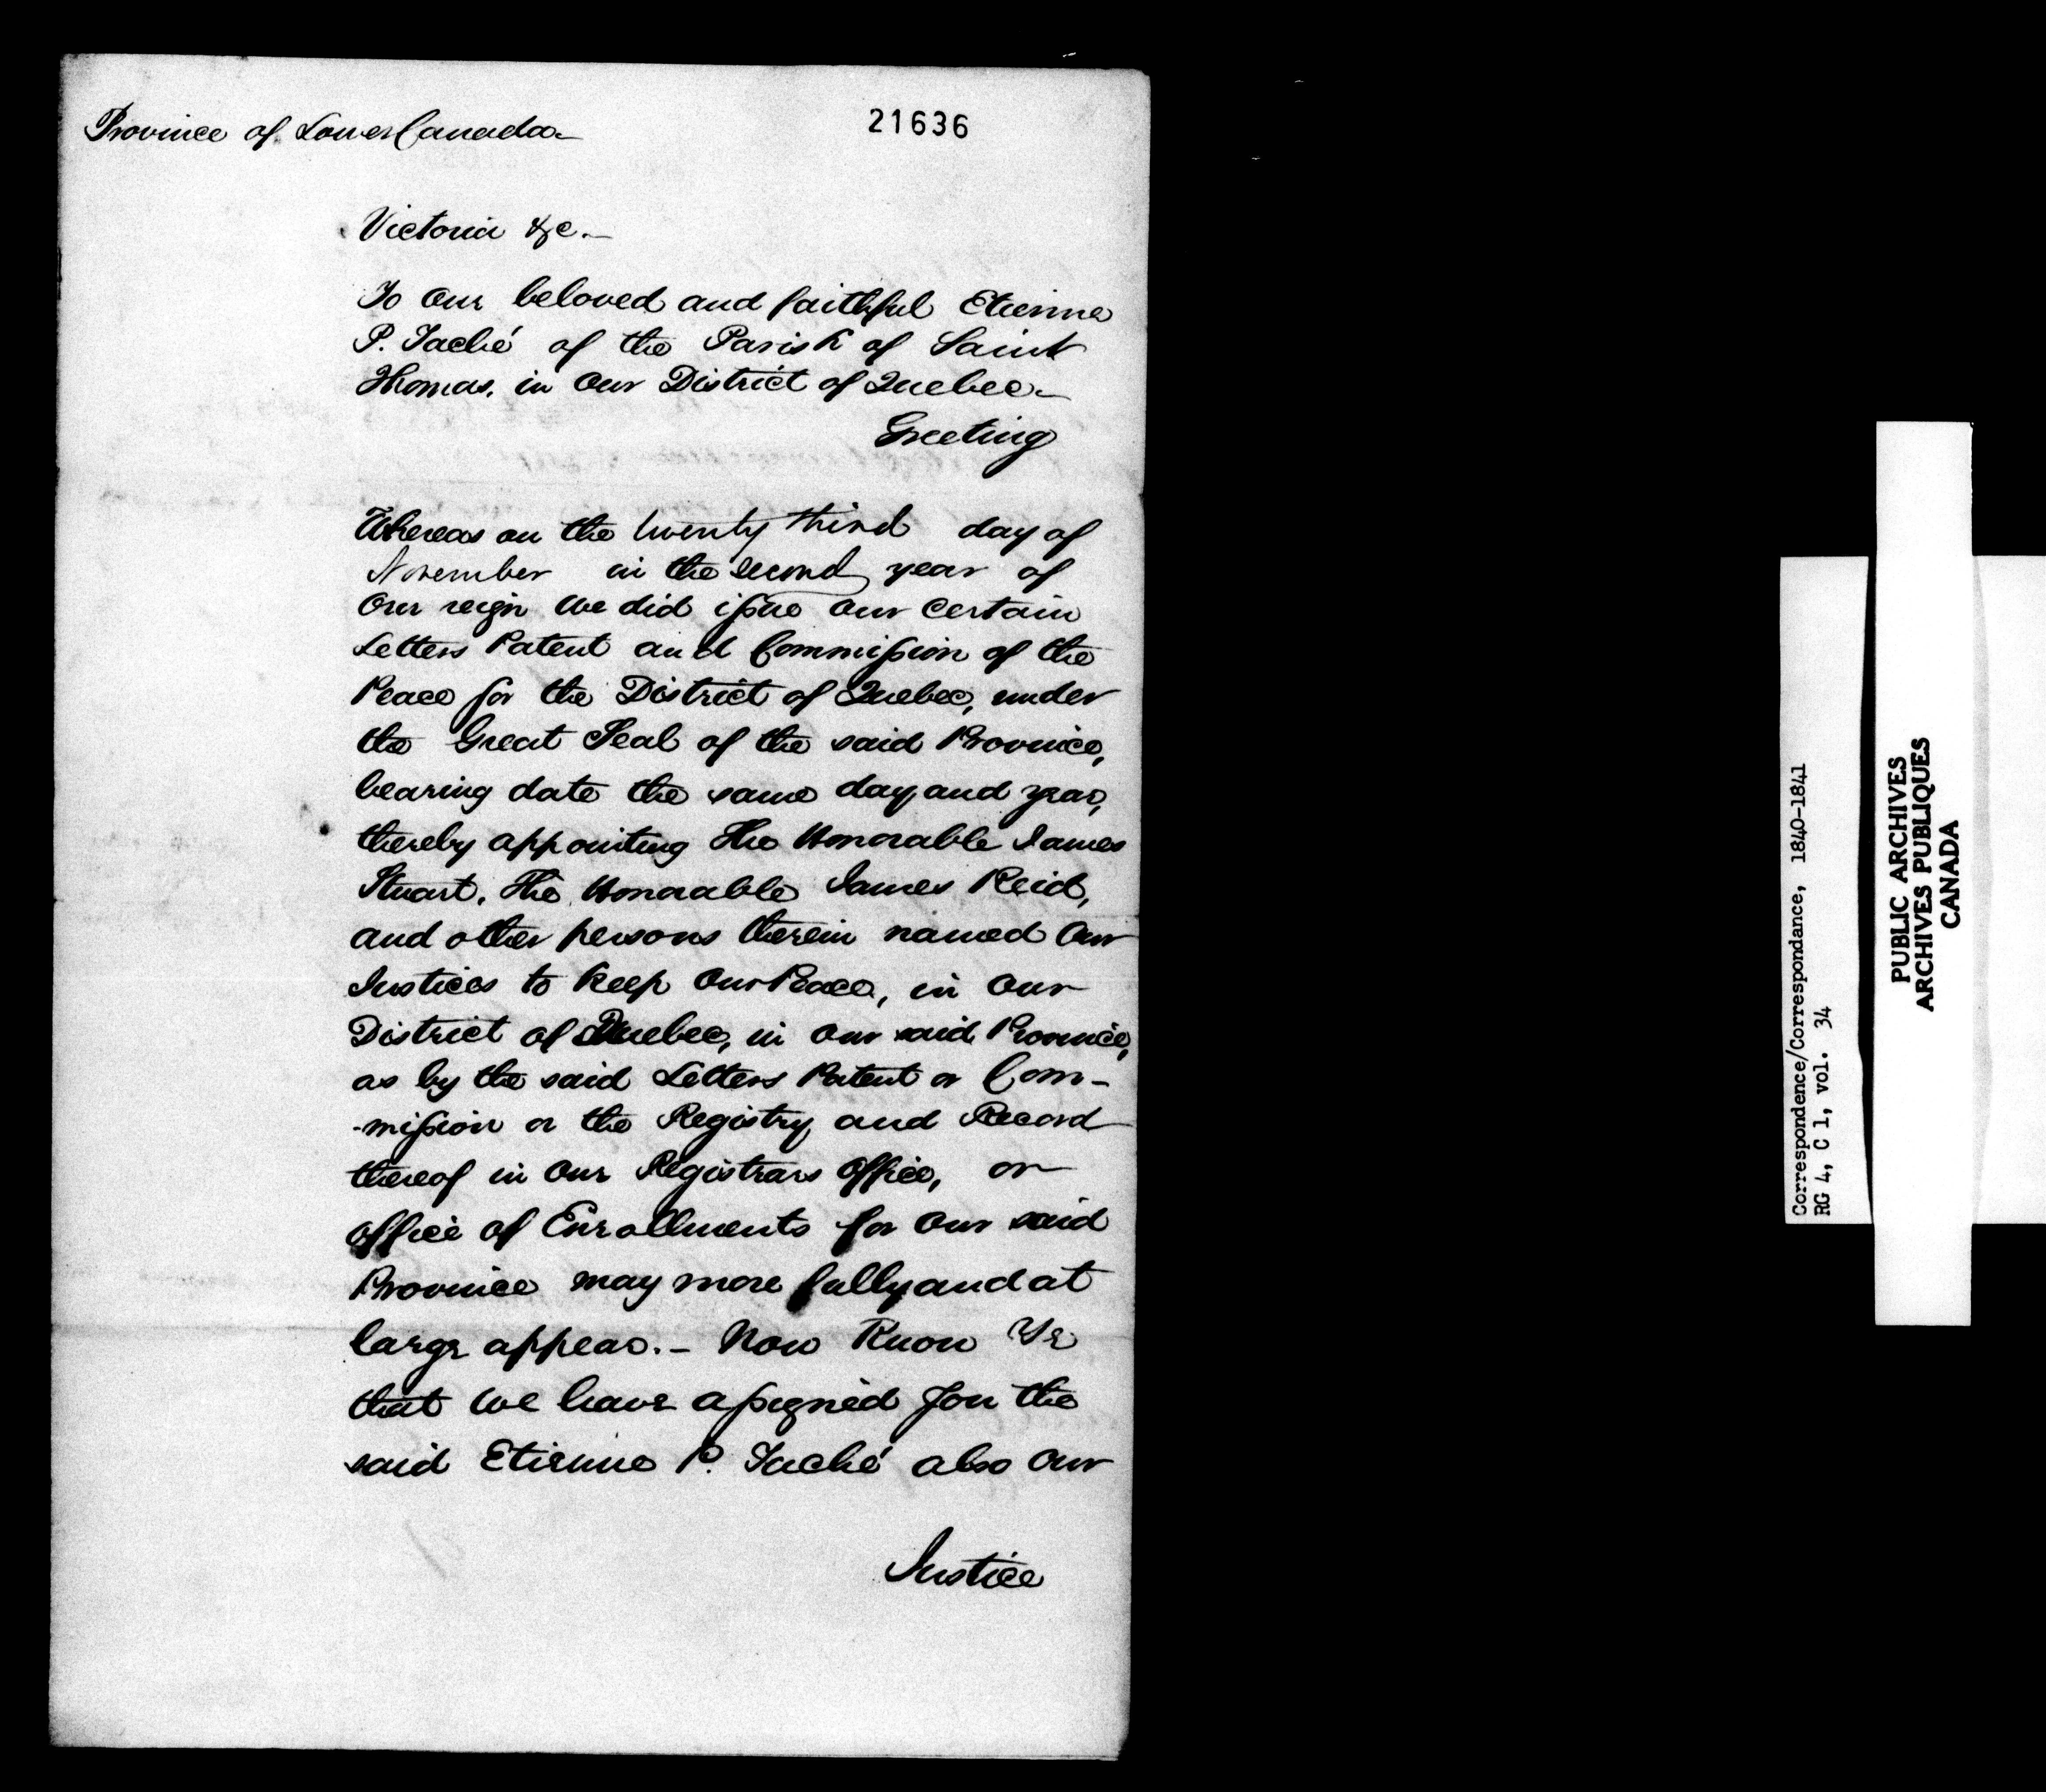 Province of Lower Canada
21636
Victoria &c.
To Our beloved and faithful Etienne
P. Taché of the Parish of Saint
Thomas, in Our District of Quebec
Greeting
Whereas on the twenty third day of
November in the second year of
Our reign We did issue Our certain
Letters Patent and Commission of the
Peace for the District of Quebec, under
the Great Seal of the said Province,
bearing date the same day and year,
thereby appointing The Honorable James
Stuart, The Honorable James Reid,
and other persons therein named Our
Justices to keep Our Peace, in Our
District of Quebec, in Our said Province,
as by the said Letters Patent or Com-
-mission or the Registry and Record
thereof in Our Registrars Office, or
Office of Enrollments for Our said
Province may more fully and at
large appear. - Now Know Ye
that We have assigned you the
said Etienne P. Taché also Our
Justice
Correspondence/Correspondance, 1840-1841
RG 4, C 1, vol. 34
PUBLIC ARCHIVES
ARCHIVES PUBLIQUES
CANADA